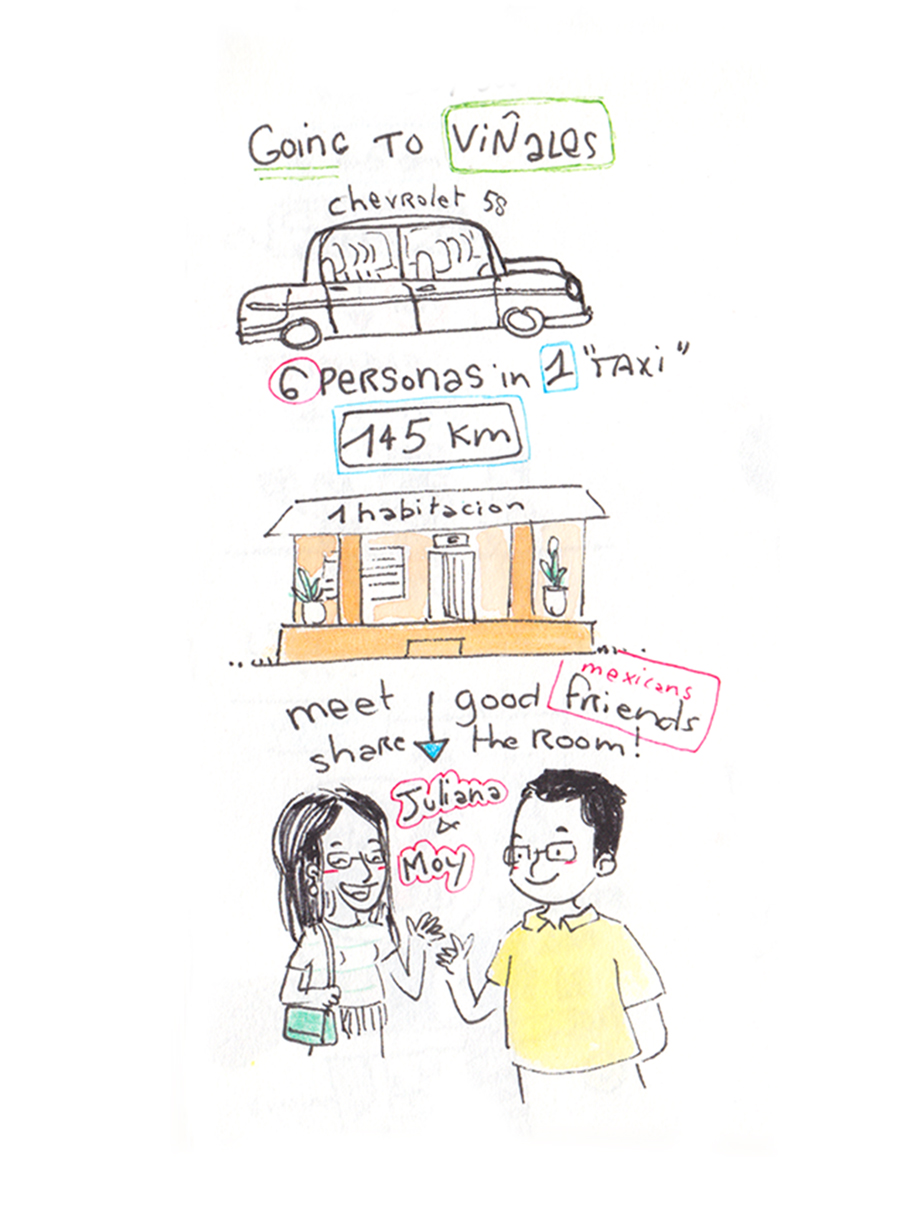 Going to Viñales
chevrolet 58
6 personas in 1 "Taxi"
145 Km
1 habitacion
mexicans
meet good friends
share the room!
Juliana
&
Moy